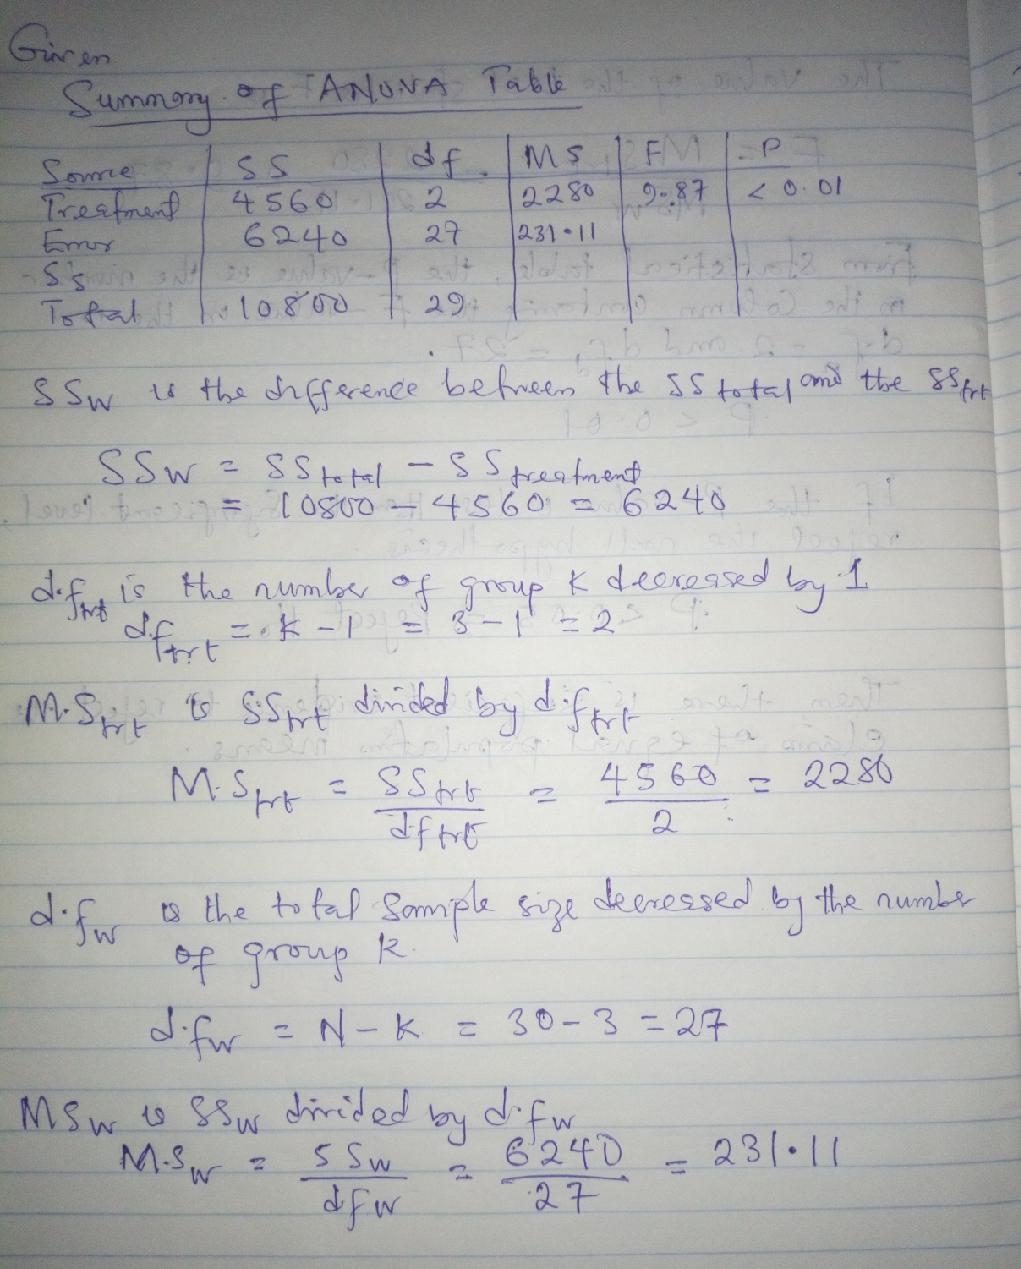 Given
Summary of ANOVA Table
Source SS df MS F P
Treatment 4560 2 2280 9.87 < 0.01
Error 6240 27 231.11
SS
Total 10800 29
SSw is the difference between the SS total and the SS trt
SSw = SS total - SS treatment
= 10800 - 4560 = 6240
d.f trt is the number of group k decreased by 1
d.f trt = k - 1 = 3 - 1 = 2
M.S trt is S.S trt divided by d.f trt
M.S trt = SS trt / d.f trt = 4560 / 2 = 2280
d.f w is the total sample size decreased by the number
of group k.
d.f w = N - k = 30 - 3 = 27
MSw is SSw divided by d.f w
M.S w = SSw / dfw = 6240 / 27 = 231.11